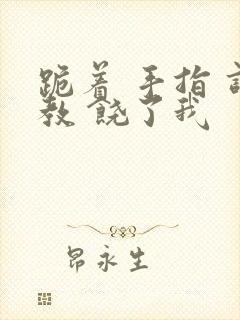 跪着 手指 调
教 饶了我
昂永生